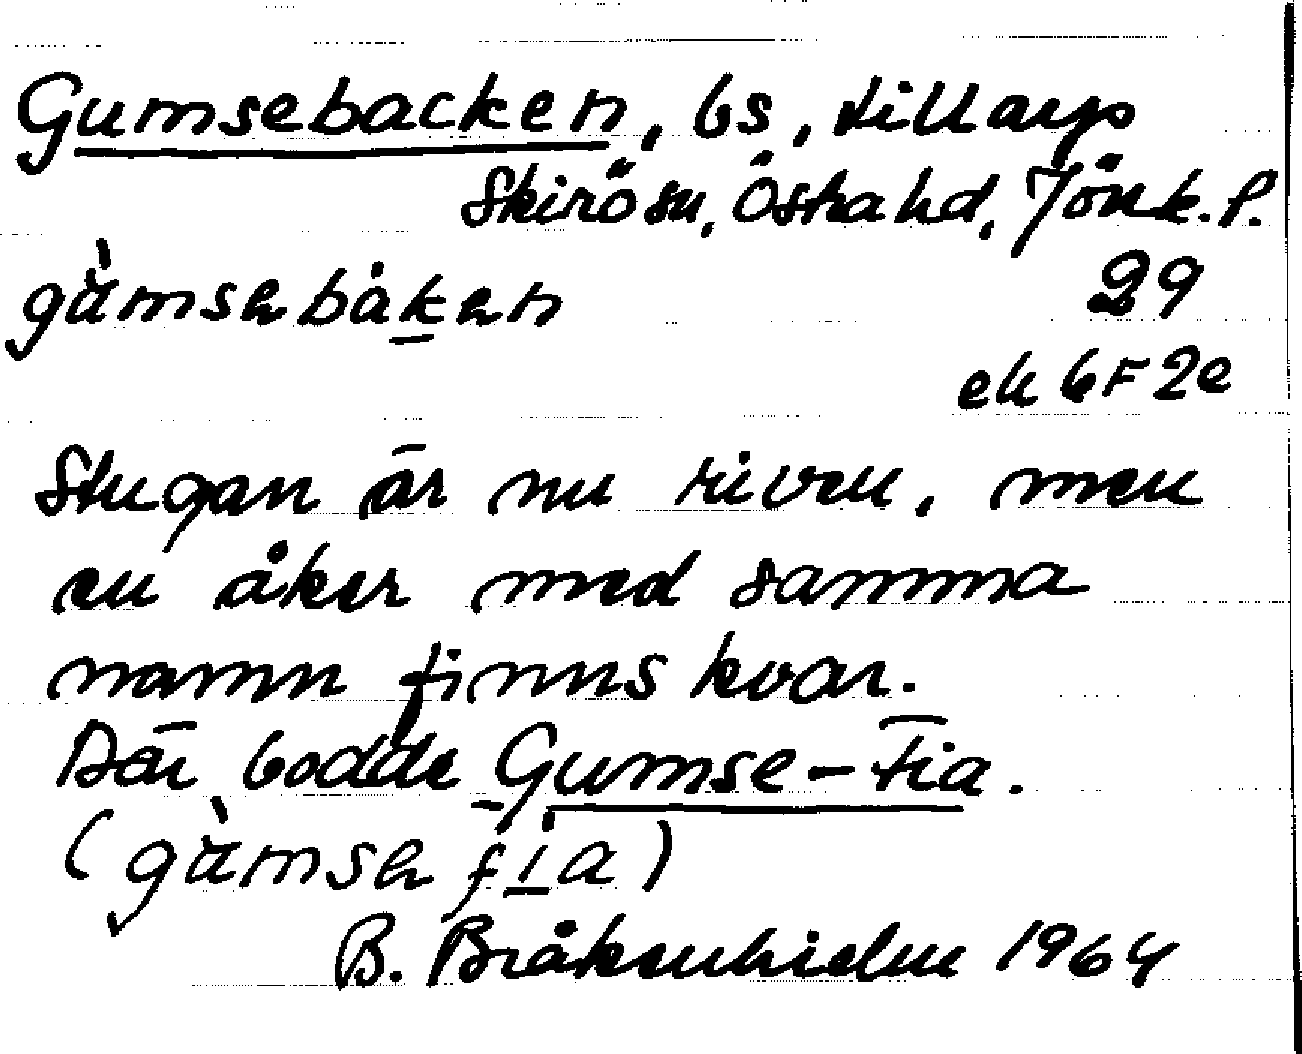 Gumsebacken, bs, Lillarp
Skirö sn, Östra hd, Jönk. l.
gùmsebåken 29
ek 6F2e
Stugan är nu riven, men
en åker med samma
namn finns kvar.
Där bodde Gumse-Fia.
(gùmse fia)
B. Bråkenhielm 1964